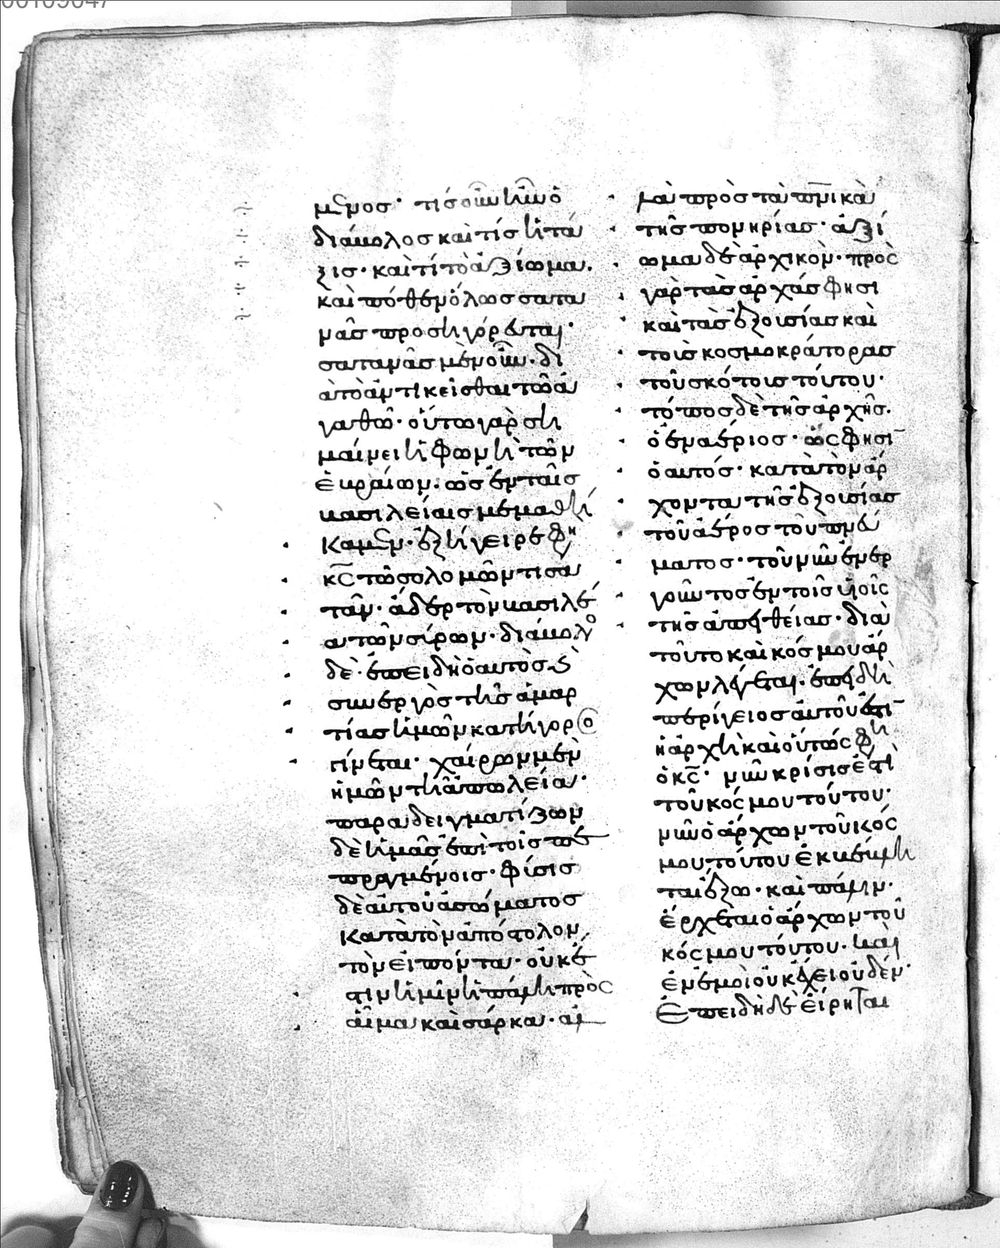 μενος· τίς οὖν ἦν ὁ
διάβολος καὶ τίς ἡ τά
ξις· καὶ τί τὸ ἀξίωμα.
καὶ πόθεν ὅλως σατα
νᾶς προσηγόρευται·
σατανᾶς μὲν οὖν· δι
ὰ τὸ ἀντικεῖσθαι τῶ ἀ
γαθῶ· οὕτω γὰρ ση
μαίνει ἡ φωνὴ τῶν
ἑβραίων. ὡς ἐν ταῖς
βασιλείαις μεμαθή
καμεν· ἐξήγειρε φη
κς τῶ σολομῶντι σα
τὰν· ἄδερ τὸν βασιλέ
α τῶν σύρων· διάβολο
δὲ· ἐπειδὴ ὁ αὐτὸς καὶ
συνεργὸς τῆς ἁμαρ
τίας ἡμῶν κατήγορος
γίνεται· χαίρων μὲν
ἡμῶν τῆ ἀπωλεία·
παραδειγματίζων
δὲ ἡμᾶς ἐπὶ τοῖς πε
πραγμένοις· φύσις
δὲ αὐτοῦ ἀσώματος
κατὰ τὸν ἀπόστολον
τὸν εἰπόντα· οὐκ ἔ
στιν ἡμῖν ἡ πάλη πρὸς
αἷμα καὶ σάρκα· ἀλ
λὰ πρὸς τὰ πνικὰ
τῆς πονηρίας· ἀξί
ωμα δὲ ἀρχικὸν· πρὸς
γὰρ τὰς ἀρχάς φησι
καὶ τὰς ἐξουσίας καὶ
τοὺς κοσμοκράτορας
τοῦ σκότους τούτου·
τόπος δὲ τῆς ἀρχῆς.
ὁ ἐναέριος· ὥς φησιν
ὁ αὐτός· κατὰ τὸν ἄρ
χοντα τῆς ἐξουσίας
τοῦ ἀέρος τοῦ πνεύ
ματος· τοῦ νῦν ἐνερ
γοῦντος ἐν τοῖς υἱοῖς
τῆς ἀπειθείας· διὰ
τοῦτο καὶ κόσμου ἄρ
χων λέγεται. ἐπειδὴ
περίγειος αὐτοῦ ἐστὶν
ἡ ἀρχὴ καὶ οὕτως φη
ὁ κς· νῦν κρίσις ἐστὶ
τοῦ κόσμου τούτου·
νῦν ὁ ἄρχων τοῦ κόσ
μου τούτου ἐκβληθή
ται ἔξω· καὶ πάλιν·
ἔρχεται ὁ ἄρχων τοῦ
κόσμου τούτου. καὶ
ἐν ἐμοὶ οὐκ ἔχει οὐδέν·
Ἐπειδὴ δὲ εἴρηται